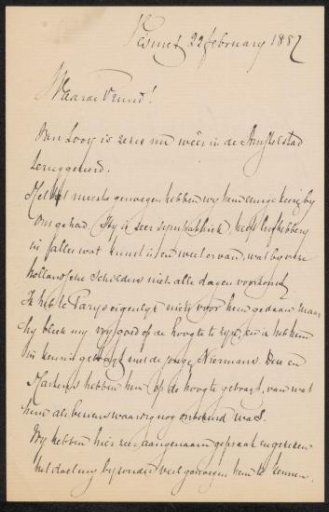 Vesinet 22 february 1887
Waarde Vriend!
Van Looy is zeker nu weer in de Amstelstad
teruggekeerd.
Met veel genoegen hebben wij hem eenige keeren by
ons gehad. Hy is zeer sympathiek, heeft liefhebbery
in alles wat kunst is en weet er van, wat by onze
hollandsche Schilders niet alle dagen voorkomt
Ik heb te Parys eigenlyk niets voor hem gedaan maar
hy bleek my vry goed op de hoogte te zyn, en ik heb hem
in kennis gebracht met de jonge Niermans. Deze en
Martens hebben hem op de hoogte gebragt, van wat
hem als beziens waardig nog onbekend was.
Wy hebben hier zeer aangenaam gepraat en gelezen
het deed my byzonder veel genoegen hem te kennen.